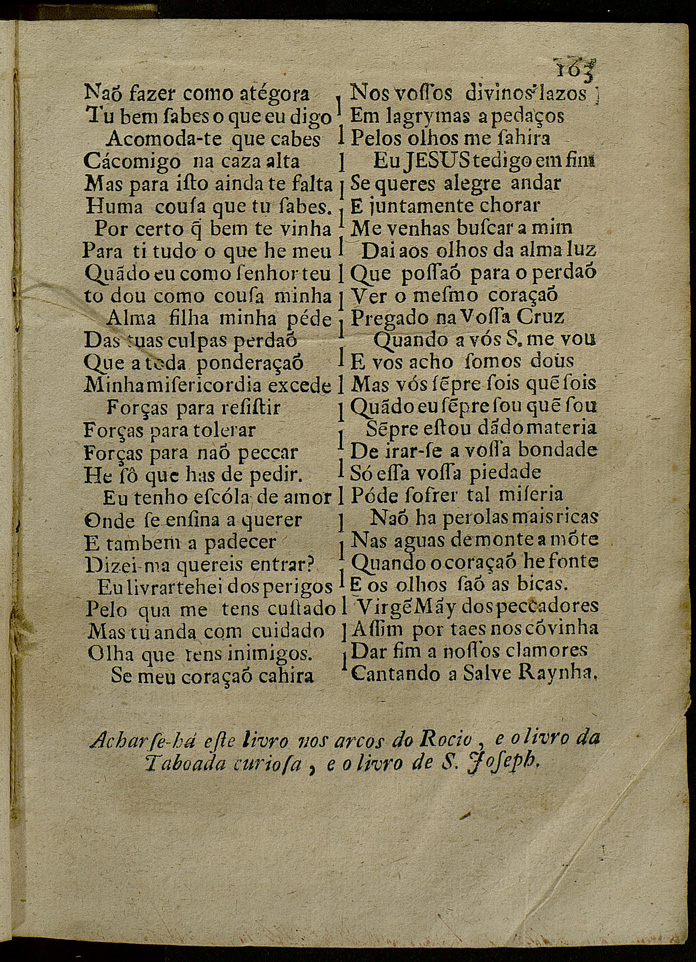 163
Naõ fazer como atégora
Tu bem ſabes o que eu digo
Acomoda-te que cabes
Cácomigo na caza alta
Mas para iſto ainda te falta
Huma couſa que tu ſabes.
Por certo q̃ bem te vinha
Para ti tudo o que he meu
Quãdo eu como ſenhor teu
to dou como couſa minha
Alma filha minha péde
Das tuas culpas perdaõ
Que a toda ponderaçaõ
Minha miſericordia excede
Forças para reſiſtir
Forças para tolerar
Forças para naõ peccar
He ſô que has de pedir.
Eu tenho eſcóla de amor
Onde ſe enſina a querer
E tambem a padecer
Dizei-ma quereis entrar?
Eu livrartehei dos perigos
Pelo qua me tens cuſtado
Mas tu anda com cuidado
Olha que tens inimigos.
Se meu coraçaõ cahira
Nos voſſos divinos lazos
Em lagrymas a pedaços
Pelos olhos me ſahira
Eu JESUS te digo em fim
Se queres alegre andar
E juntamente chorar
Me venhas buſcar a mim
Dai aos olhos da alma luz
Que poſſaõ para o perdaõ
Ver o meſmo coraçaõ
Pregado na Voſſa Cruz
Quando a vós S. me vou
E vos acho ſomos dous
Mas vós ſẽpre ſois quẽ ſois
Quãdo eu ſẽpre ſou quẽ ſou
Sẽpre eſtou dãdo materia
De irar-ſe a voſſa bondade
Só eſſa voſſa piedade
Póde ſofrer tal miſeria
Naõ ha perolas mais ricas
Nas aguas de monte a mõte
Quando o coraçaõ he fonte
E os olhos ſaõ as bicas.
Virgẽ Mãy dos peccadores
Aſſim por taes nos cõvinha
Dar fim a noſſos clamores
Cantando a Salve Raynha.
Acharſe-há eſte livro nos arcos do Rocio, e o livro da
Taboada curioſa, e o livro de S. Joſeph.